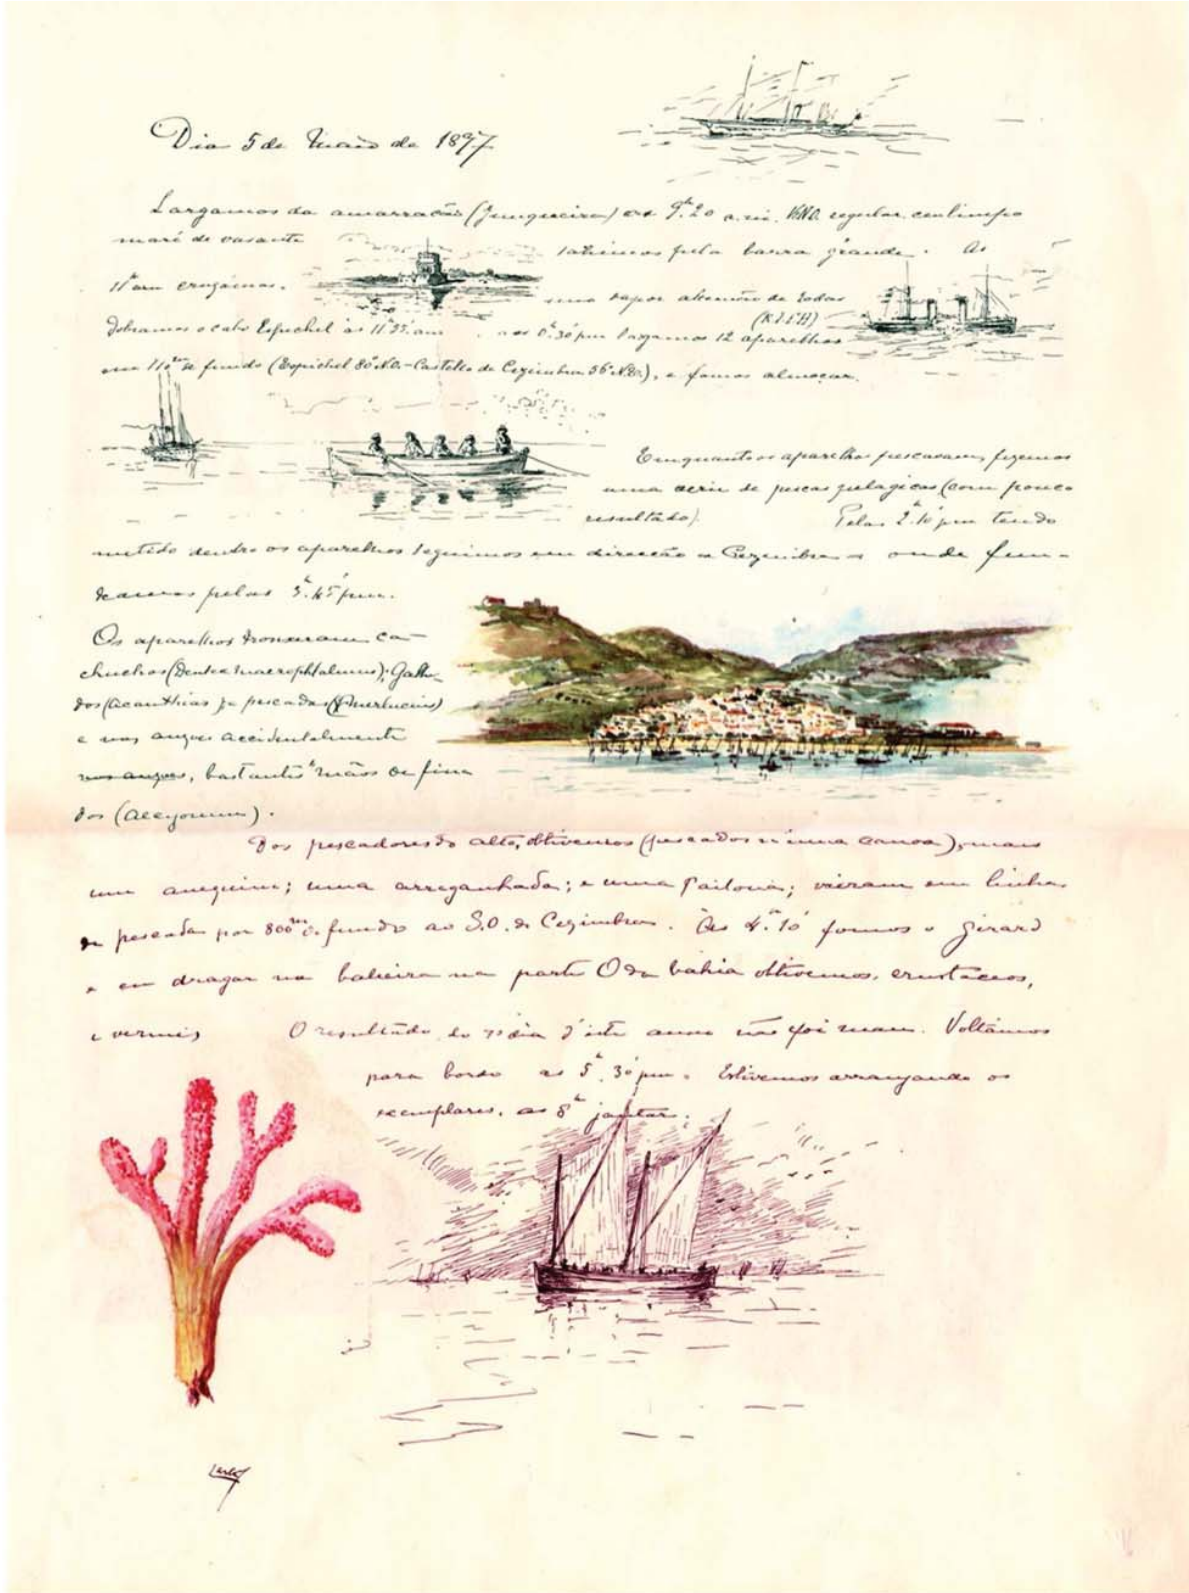 Dia 5 de Maio de 1897
Largamos da amarração (Junqueira) ás 9h.20 a.m. NNO. regular, ceu limpo
maré de vasante sahimos pela barra grande. As
11h am cruzámos. um vapor alemão de rodas
(KIEH)
Dobramos o cabo Espichel ás 11h35' am. aos 0h.30' pm largamos 12 aparelhos
em 110m de fundo (Espichel 80º NO. - Castello de Cezimbra 56º NE.), e fomos almoçar.
Emquanto os aparelhos pescavam, fizemos
uma serie de pescas pelagicas (com pouco
resultado). Pelas 2h.10' pm tendo
metido dentro os aparelhos seguimos em direcção a Cezimbra onde fun-
deamos pelas 3h.45' pm.
Os aparelhos trouxeram ca-
chuchos (Dentex macrophtalmus), Galhu-
dos (Acanthias) e pescadas (Merlucius)
e nos anzoes accidentalmente
nos anzoes, bastantes "mãos de fina
dos (Alcyonium).
Dos pescadores do alto, obtivemos (pescados n'uma canoa), mais
um anequim; uma arreganhada; e uma Sailona; vieram em linhas
de pescada por 800m de fundo ao S.O. de Cezimbra. Ás 4h.10' fomos o Girard
e eu dragar na baleeira na parte O da bahia obtivemos, crustaceos,
e vermes O resultado do 1º dia d'este anno não foi mau. Voltámos
para bordo as 5h.30' pm. Estivemos arranjando os
exemplares. as 8h jantar.